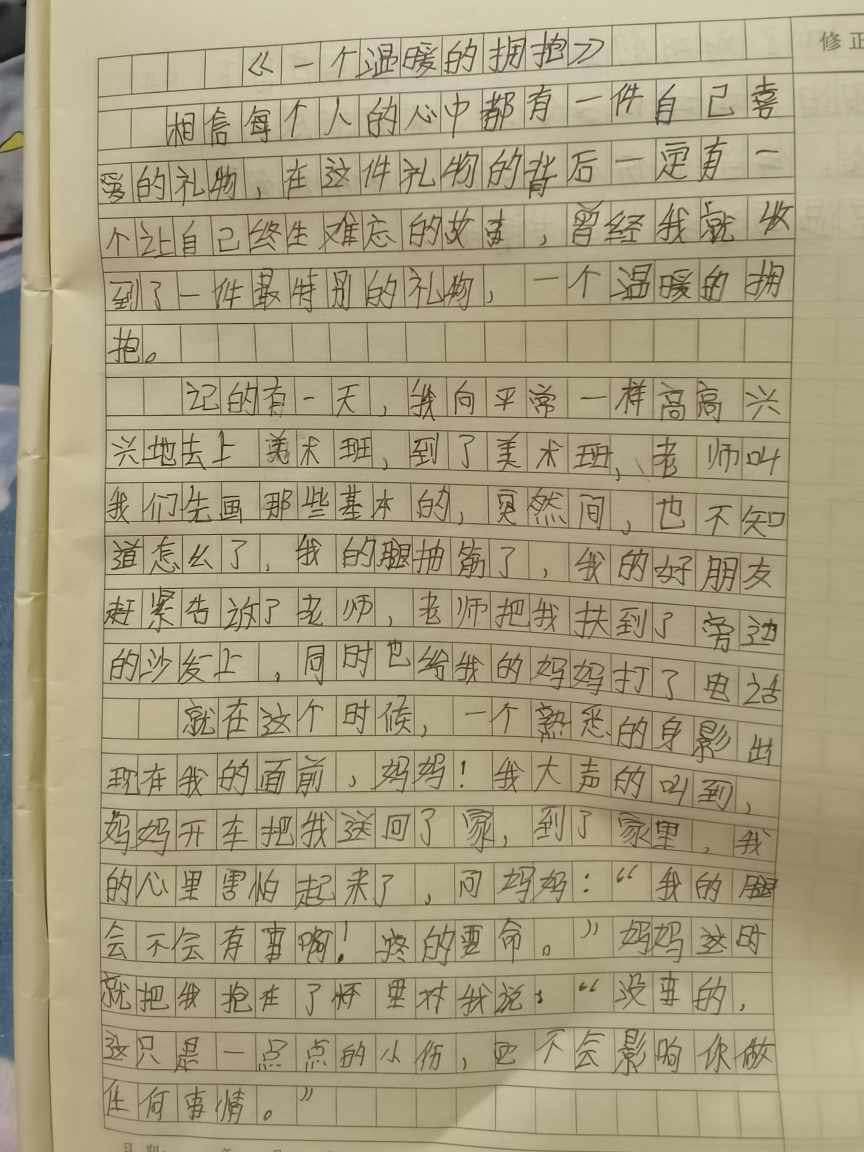 修正
《一个温暖的拥抱》
相信每个人的心中都有一件自己喜
爱的礼物，在这件礼物的背后一定有一
个让自己终生难忘的故事，曾经我就收
到了一件最特别的礼物，一个温暖的拥
抱。
记的有一天，我向平常一样高高兴
兴地去上美术班，到了美术班，老师叫
我们先画那些基本的，突然间，也不知
道怎么了，我的腿抽筋了，我的好朋友
赶紧告放了老师，老师把我扶到了旁边
的沙发上，同时也给我的妈妈打了电话
就在这个时候，一个熟悉的身影出
现在我的面前，妈妈！我大声的叫到，
妈妈开车把我送回了家，到了家里，我
的心里害怕起来了，问妈妈：“我的腿
会不会有事啊！疼的要命。”妈妈这时
就把我抱在了怀里对我说：“没事的，
这只是一点点的小伤，也不会影响你做
任何事情。”